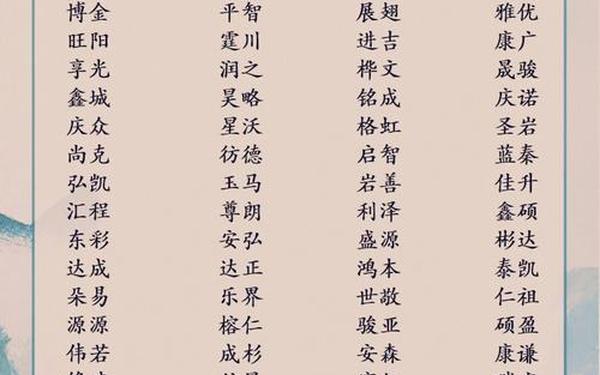 博金 平智 展翅 雅优
旺阳 霆川 进吉 康广
享光 润之 桦文 晟骏
鑫城 昊略 铭成 庆诺
庆众 星沃 格虹 圣岩
尚克 彷德 启智 蓝秦
弘凯 玉马 岩善 佳升
汇程 尊朗 利泽 鑫硕
东彩 安弘 盛源 彬达
达成 达正 鸿本 泰凯
朵易 乐界 世敬 仁祖
源源 榕仁 骏亚 硕盈
伟若 成杉 安森 康谦